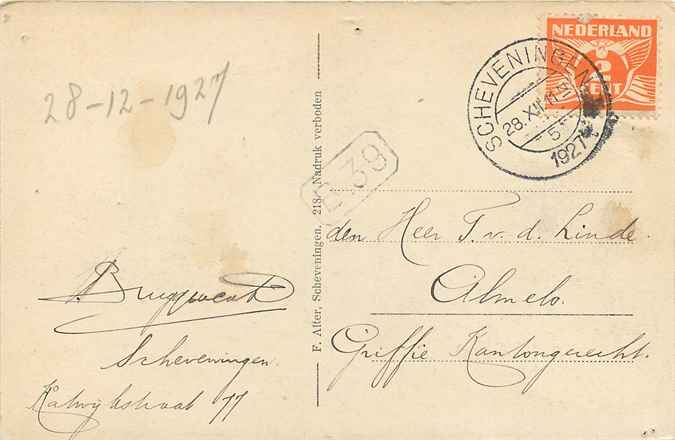 28-12-1927
NEDERLAND
2
CENT
SCHEVENINGEN
28.XII 11
5
1927
39
F. Alter, Scheveningen, 218. Nadruk verboden
den Heer T. v. d. Linde.
Almelo.
Griffie Kantongerecht.
Scheveningen.
Katwijkstraat 77